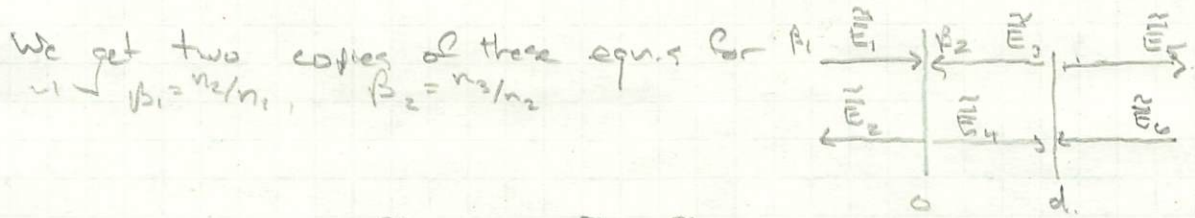 We get two copies of these equn.s for β₁ Ẽ₁ β₂ Ẽ₃ Ẽ₅
w/ β₁ = n₂/n₁, β₂ = n₃/n₂
Ẽ₂ Ẽ₄ Ẽ₆
0 d.